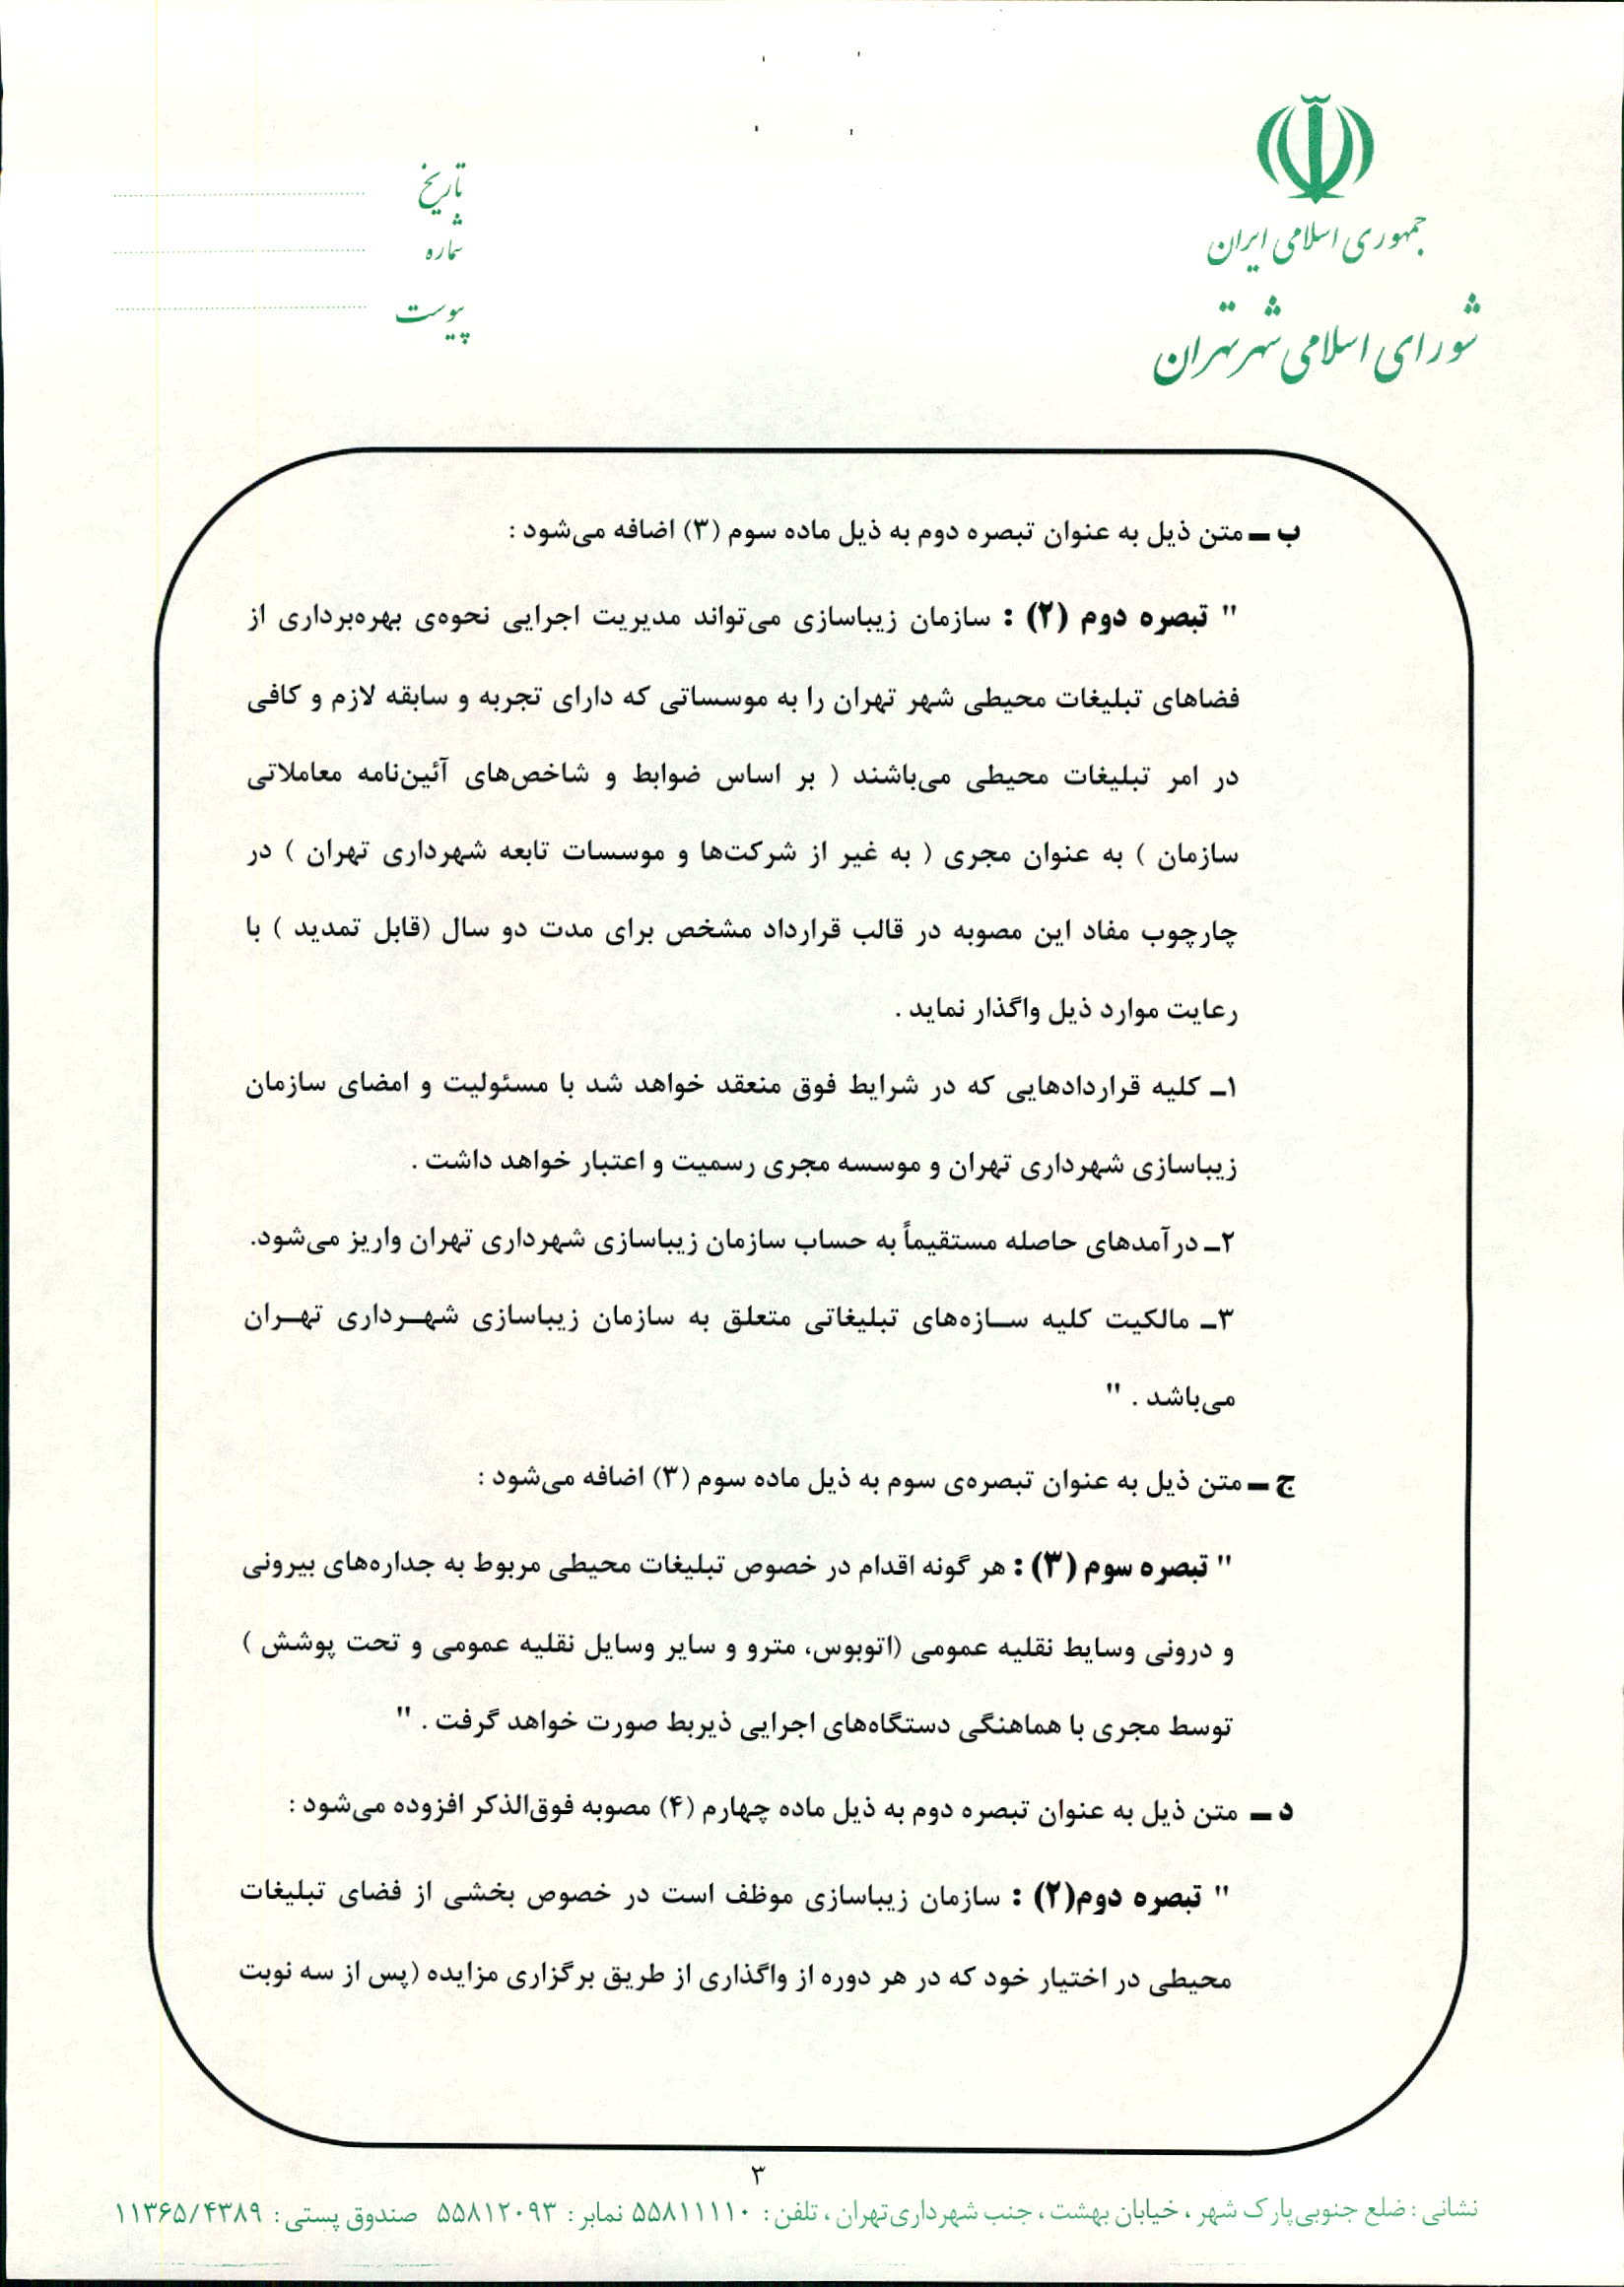 جمهوری اسلامی ایران
شورای اسلامی شهر تهران
تاریخ
شماره
پیوست
ب ـ متن ذیل به عنوان تبصره دوم به ذیل ماده سوم (۳) اضافه می‌شود :
" تبصره دوم (۲) : سازمان زیباسازی می‌تواند مدیریت اجرایی نحوه‌ی بهره‌برداری از
فضاهای تبلیغات محیطی شهر تهران را به موسساتی که دارای تجربه و سابقه لازم و کافی
در امر تبلیغات محیطی می‌باشند ( بر اساس ضوابط و شاخص‌های آئین‌نامه معاملاتی
سازمان ) به عنوان مجری ( به غیر از شرکت‌ها و موسسات تابعه شهرداری تهران ) در
چارچوب مفاد این مصوبه در قالب قرارداد مشخص برای مدت دو سال (قابل تمدید ) با
رعایت موارد ذیل واگذار نماید .
۱ـ کلیه قراردادهایی که در شرایط فوق منعقد خواهد شد با مسئولیت و امضای سازمان
زیباسازی شهرداری تهران و موسسه مجری رسمیت و اعتبار خواهد داشت .
۲ـ درآمدهای حاصله مستقیماً به حساب سازمان زیباسازی شهرداری تهران واریز می‌شود.
۳ـ مالکیت کلیه ســازه‌های تبلیغاتی متعلق به سازمان زیباسازی شهــرداری تهــران
می‌باشد . "
ج ـ متن ذیل به عنوان تبصره‌ی سوم به ذیل ماده سوم (۳) اضافه می‌شود :
" تبصره سوم (۳) : هر گونه اقدام در خصوص تبلیغات محیطی مربوط به جداره‌های بیرونی
و درونی وسایط نقلیه عمومی (اتوبوس، مترو و سایر وسایل نقلیه عمومی و تحت پوشش )
توسط مجری با هماهنگی دستگاه‌های اجرایی ذیربط صورت خواهد گرفت . "
د ـ متن ذیل به عنوان تبصره دوم به ذیل ماده چهارم (۴) مصوبه فوق‌الذکر افزوده می‌شود :
" تبصره دوم(۲) : سازمان زیباسازی موظف است در خصوص بخشی از فضای تبلیغات
محیطی در اختیار خود که در هر دوره از واگذاری از طریق برگزاری مزایده (پس از سه نوبت
۳
نشانی : ضلع جنوبی‌پارک شهر ، خیابان بهشت ، جنب شهرداری‌تهران ، تلفن : ۵۵۸۱۱۱۱۰ نمابر : ۵۵۸۱۲۰۹۳ صندوق پستی : ۱۱۳۶۵/۴۳۸۹